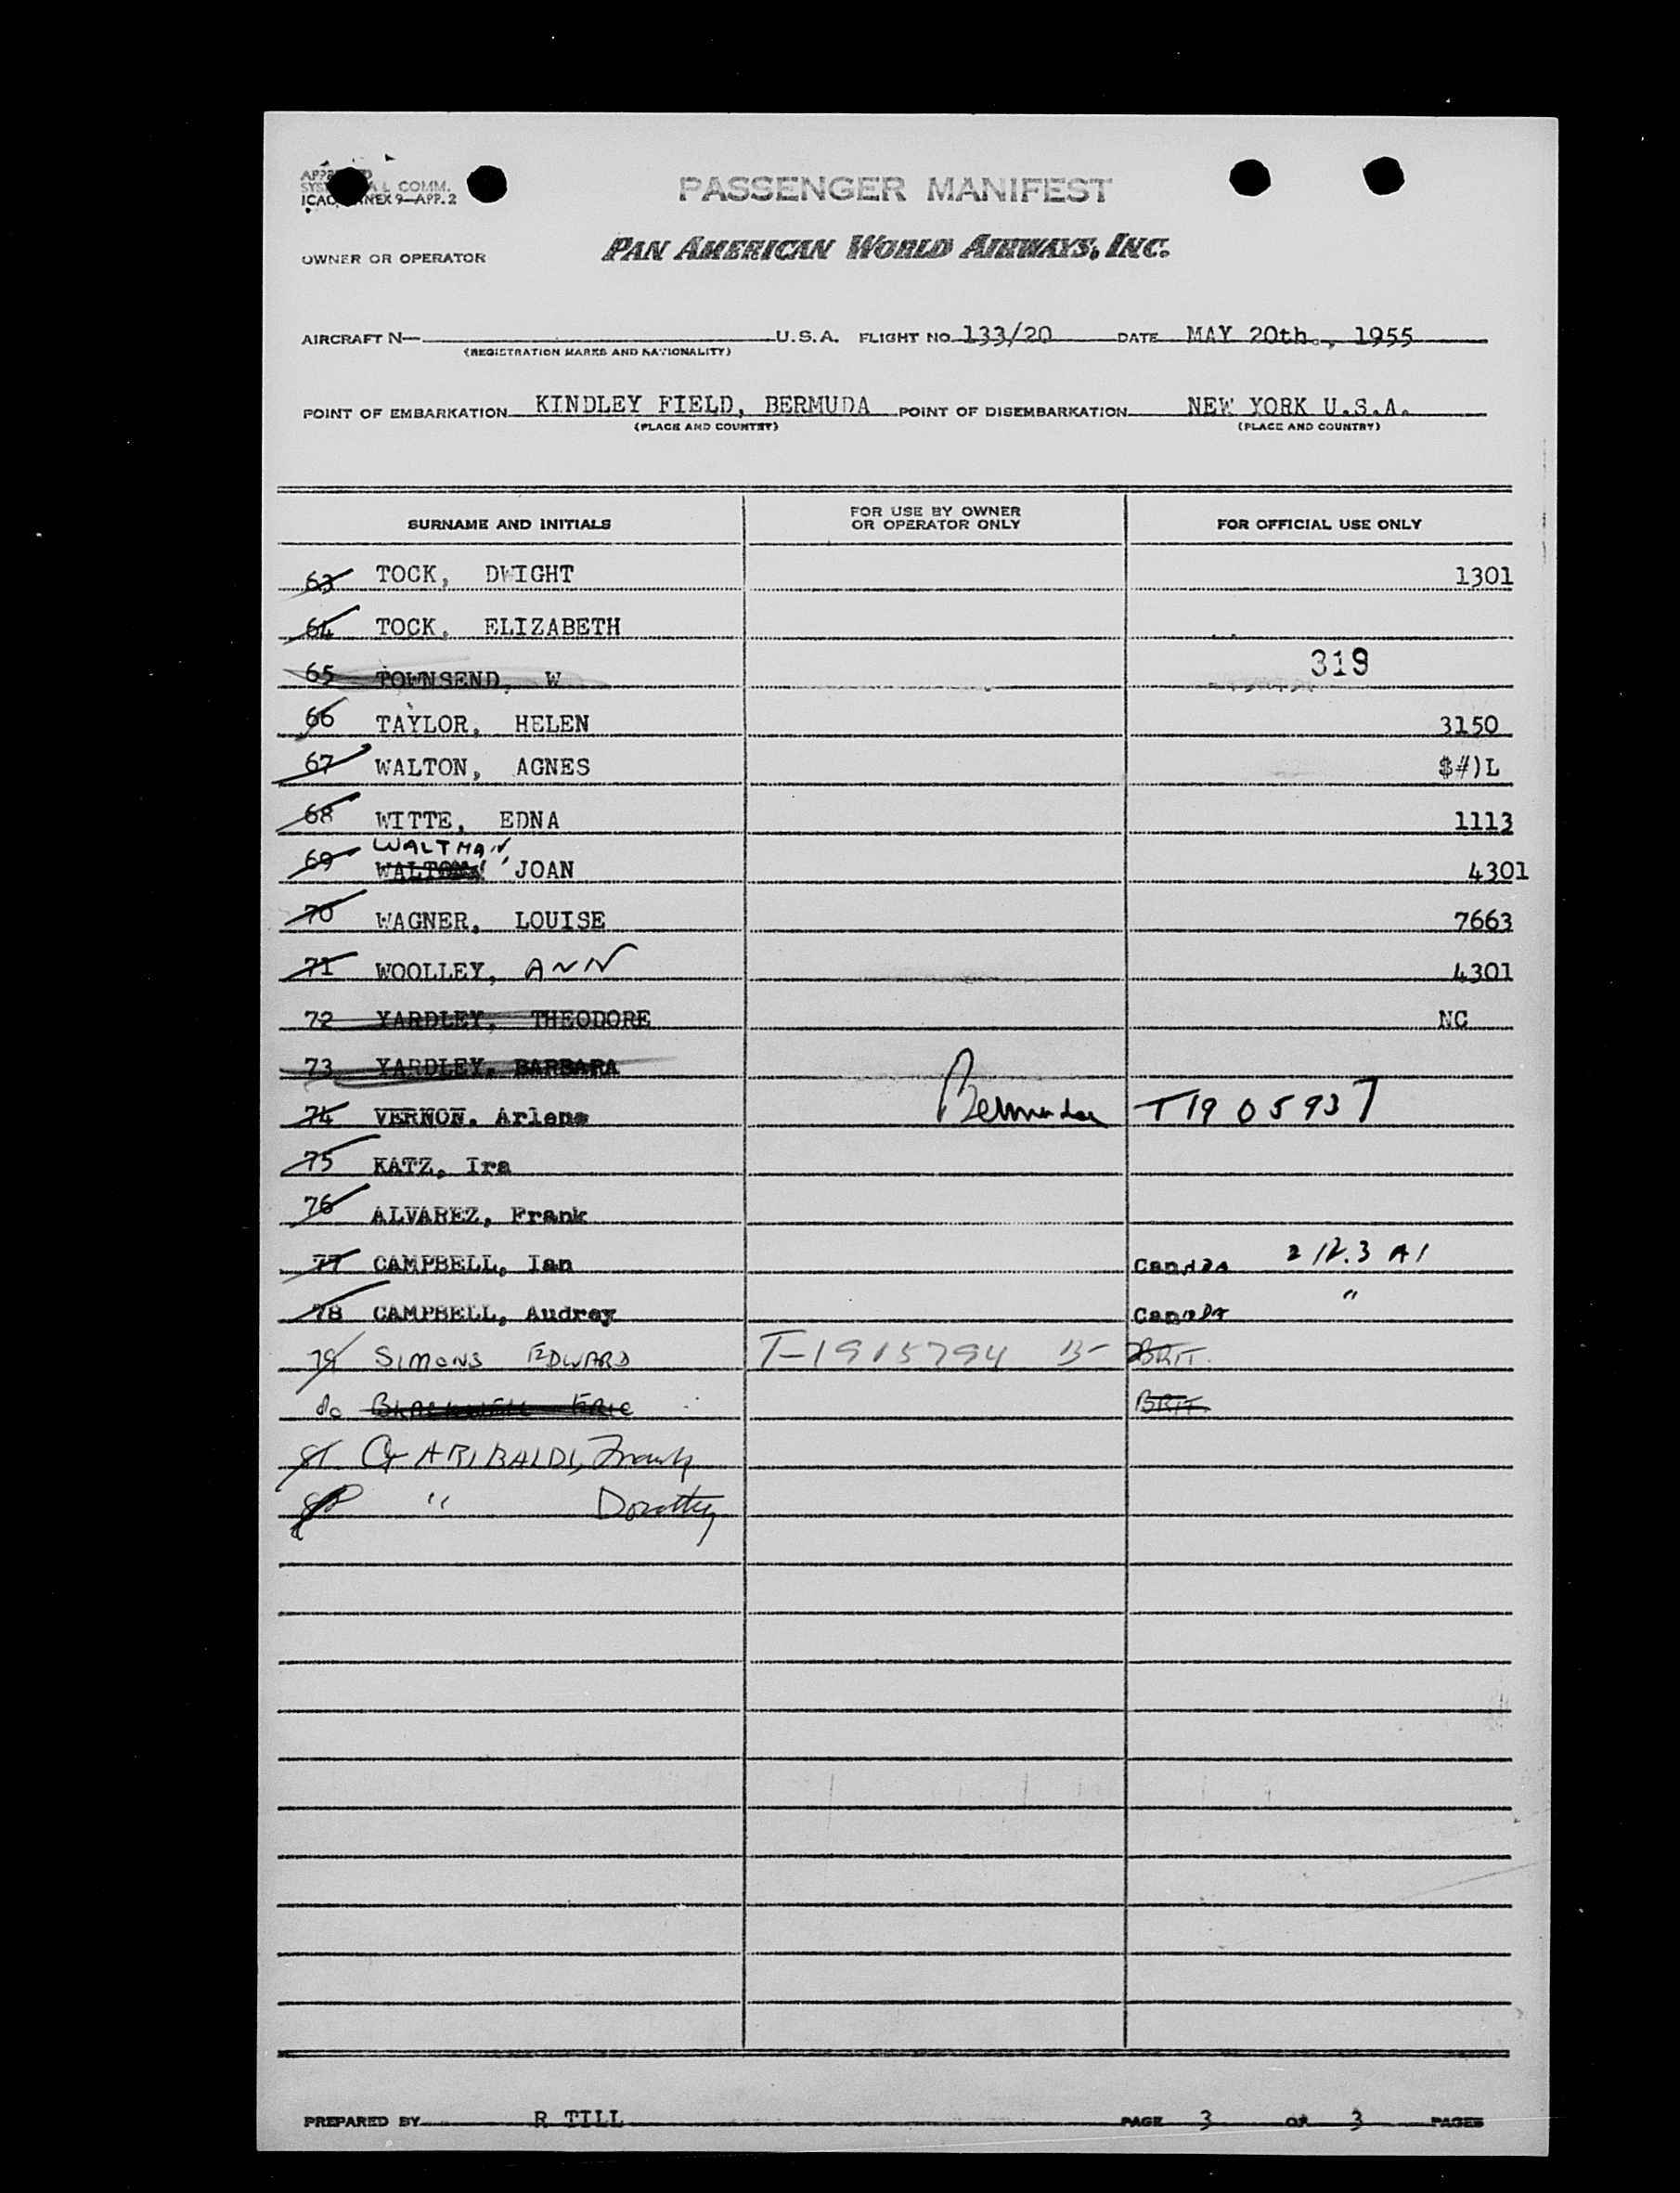 PASSENGER MANIFEST
COMM.
ICAO ANNEX 9—APP. 2
OWNER OR OPERATOR PAN AMERICAN WORLD AIRWAYS, INC.
AIRCRAFT N— U.S.A. FLIGHT NO. 133/20 DATE MAY 20th., 1955
(REGISTRATION MARKS AND NATIONALITY)
POINT OF EMBARKATION KINDLEY FIELD, BERMUDA POINT OF DISEMBARKATION NEW YORK U.S.A.
(PLACE AND COUNTRY) (PLACE AND COUNTRY)
SURNAME AND INITIALS FOR USE BY OWNER OR OPERATOR ONLY FOR OFFICIAL USE ONLY
63 TOCK, DWIGHT 1301
64 TOCK, ELIZABETH
65 TOWNSEND, W 319
66 TAYLOR, HELEN 3150
67 WALTON, AGNES $#)L
68 WITTE, EDNA 1113
WALTMAN
69 WALTON, JOAN 4301
70 WAGNER, LOUISE 7663
71 WOOLLEY, ANN 4301
72 YARDLEY, THEODORE NC
73 YARDLEY, BARBARA
74 VERNON, Arlene Bermuda T1905937
75 KATZ, Ira
76 ALVAREZ, Frank
77 CAMPBELL, Ian Canada 212.3 A1
78 CAMPBELL, Audrey Canada "
79 SIMONS EDWARD T-1915794 B- BRIT.
80 BLACKWELL ERIC BRIT.
81 GARIBALDI, Frank
82 " Dorothy
PREPARED BY R TILL PAGE 3 OF 3 PAGES